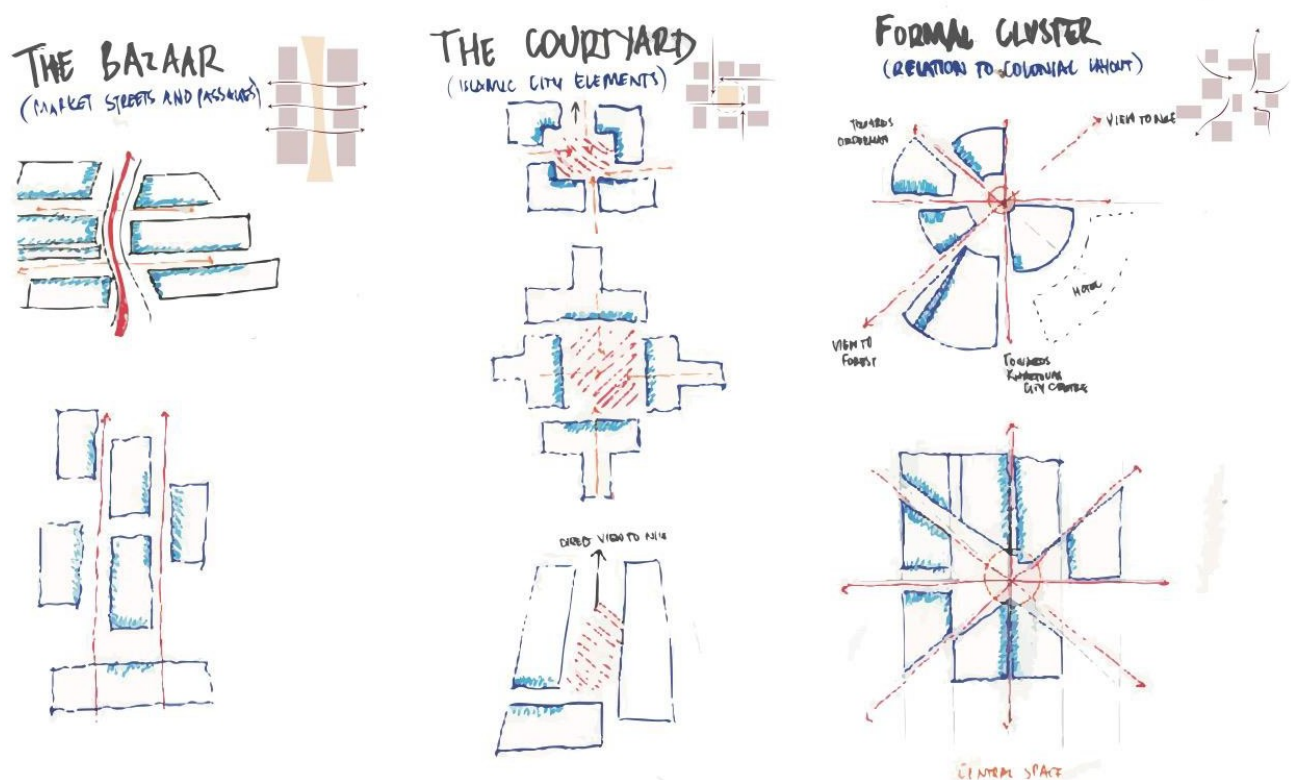 THE BAZAAR
(MARKET STREETS AND PASSAGES)
THE COURTYARD
(ISLAMIC CITY ELEMENTS)
DIRECT VIEW TO NILE
FORMAL CLUSTER
(RELATION TO COLONIAL LAYOUT)
TOWARDS
OMDURMAN
VIEW TO NILE
HOTEL
VIEW TO
FOREST
TOWARDS
KHARTOUM
CITY CENTRE
CENTRAL SPACE